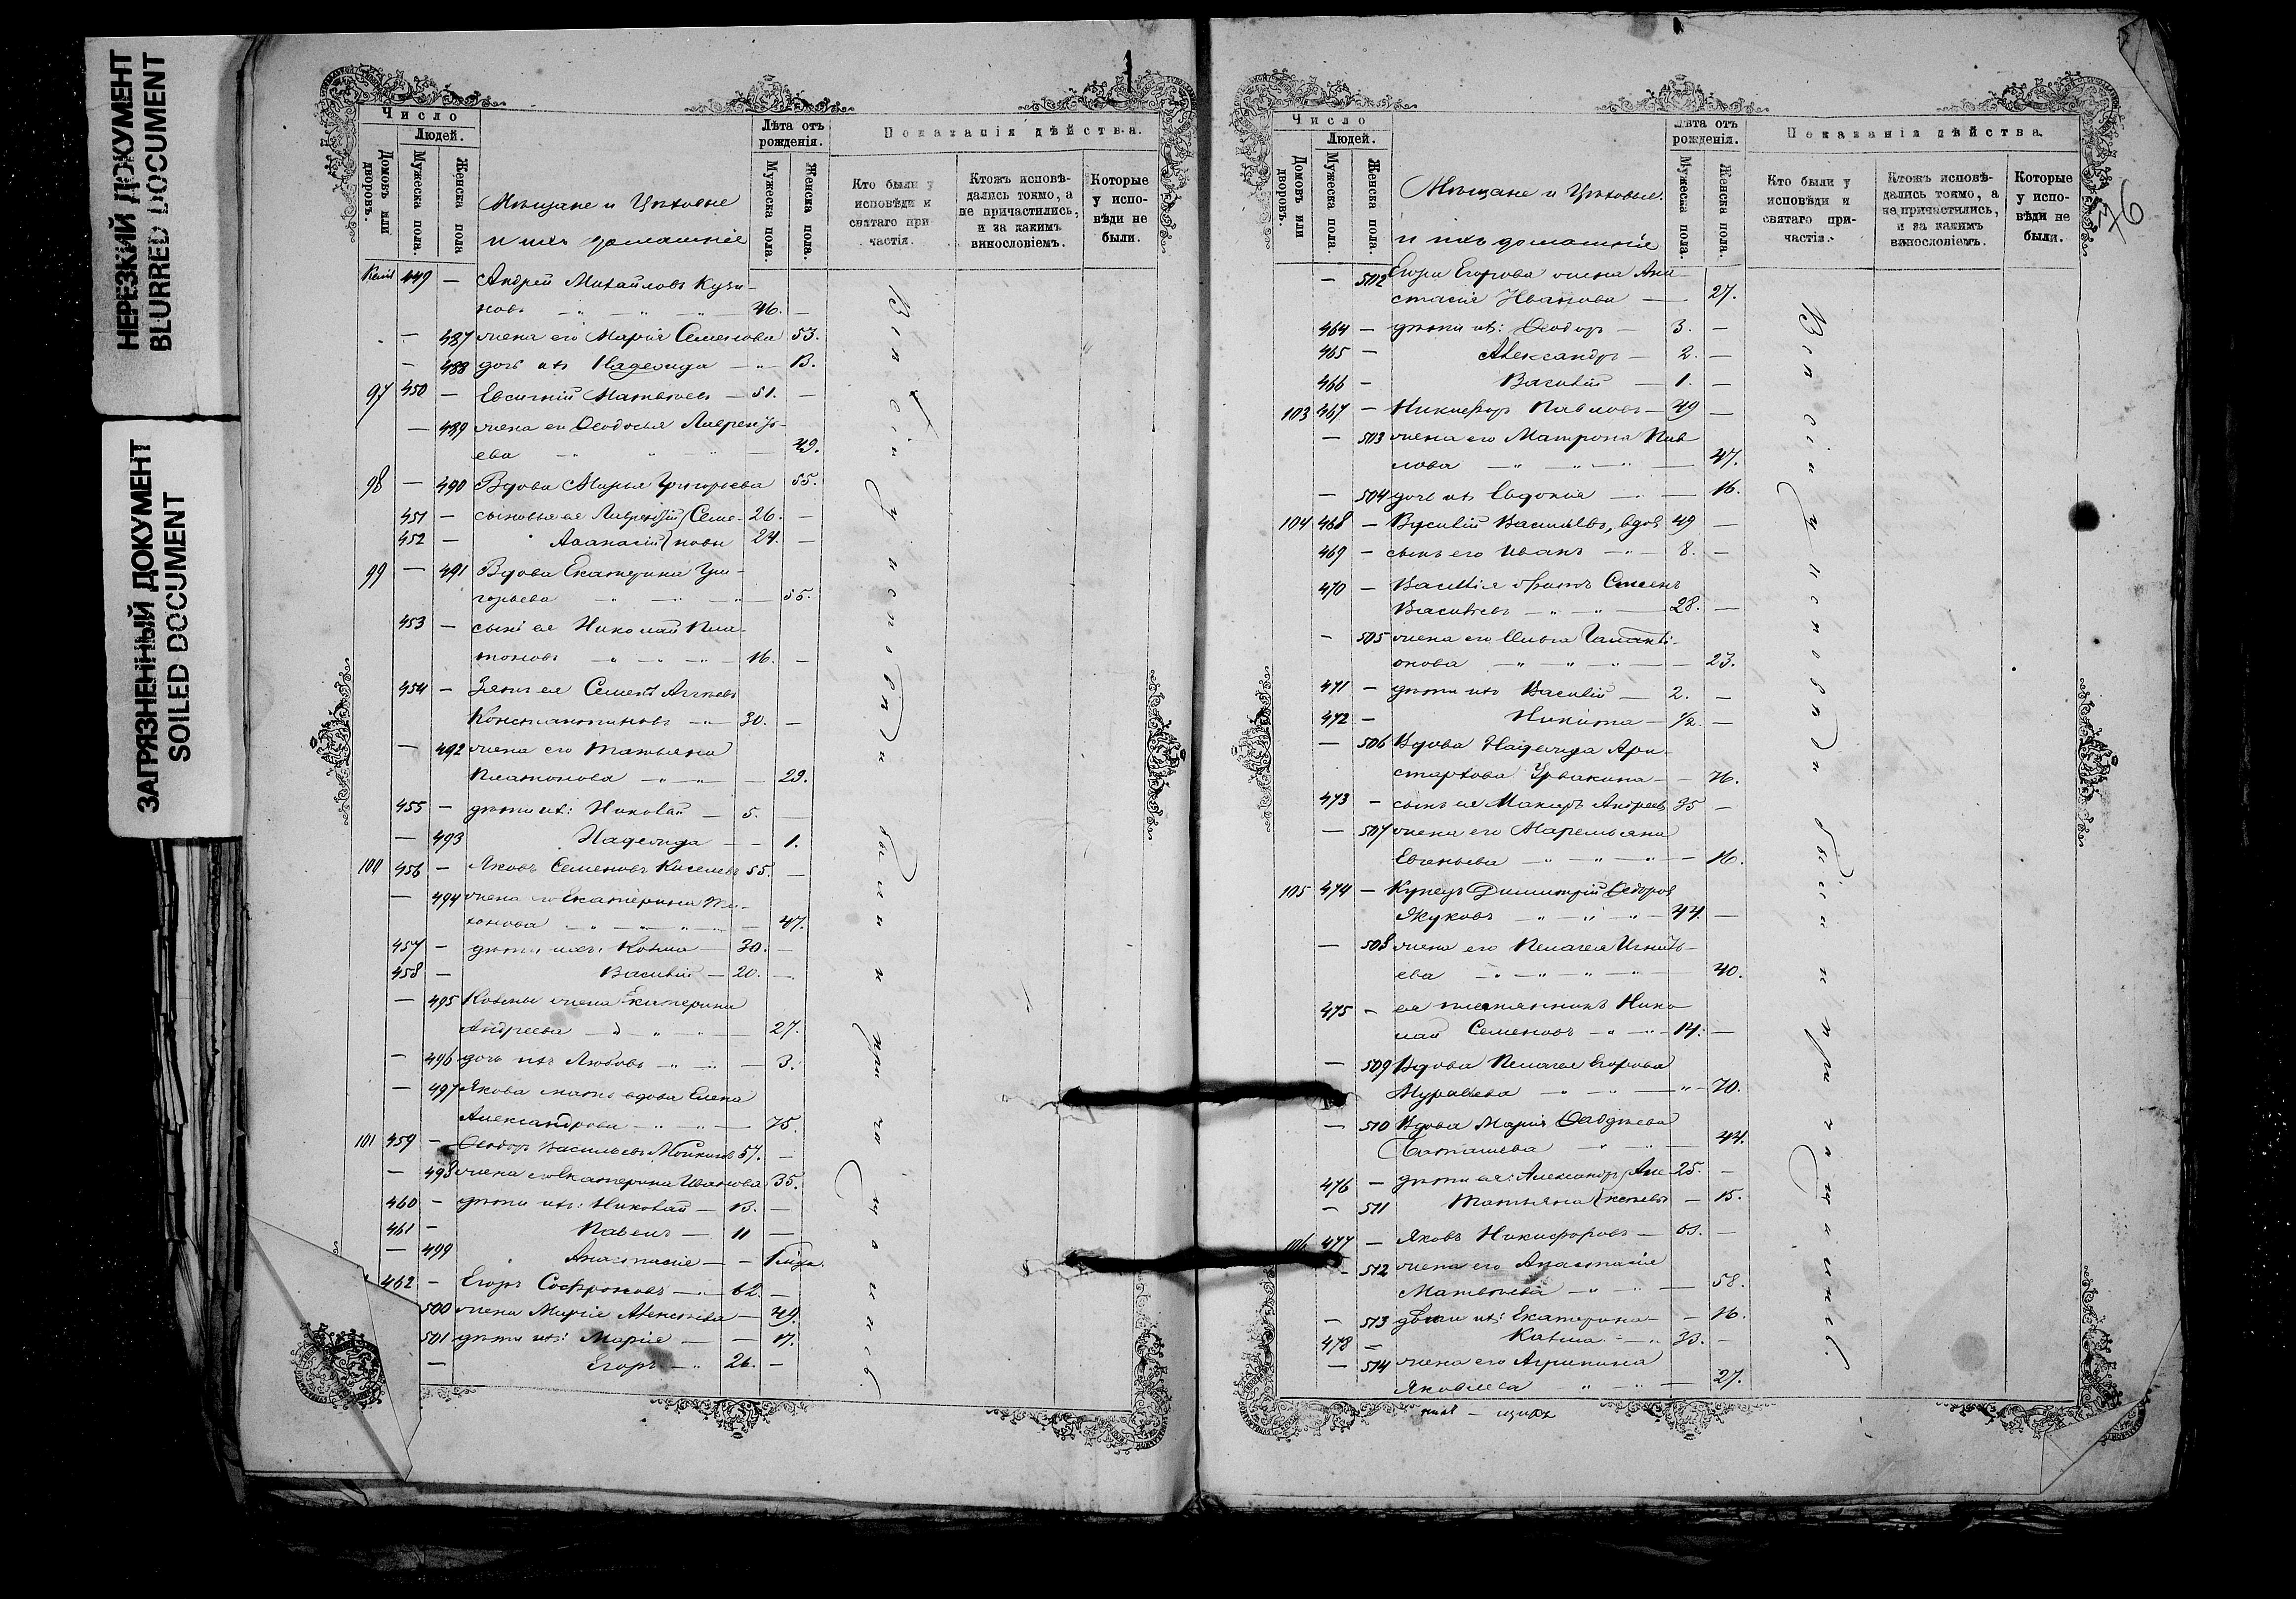 НЕРЕЗКИЙ ДОКУМЕНТ
BLURRED DOCUMENT
ЗАГРЯЗНЕННЫЙ ДОКУМЕНТ
SOILED DOCUMENT
Число
Людей.
Домовъ или дворовъ.
Мужеска пола.
Женска пола
Мѣщане и Цѣховые
и ихъ домашніе
Лѣта отъ рожденія.
Мужеска пола.
Женска пола.
Показанія дѣйства.
Кто были у исповѣди и святаго причастія.
Ктожъ исповѣдались токмо, а не причастились, и за какимъ винословіемъ.
Которые у исповѣди не были.
449 — Андрей Михайловъ
новъ 46. —
— 487 жена его Марія Семенова 53.
— 488 дочь ихъ Надежда — 13.
97 450 — Евсигній Матвѣевъ — 51. —
— 489 жена ег Ѳеодосья Лаврентьева
49.
98 — 490 Вдова Марья Григорьева 55.
451 — сыновья ея Лаврентій Семе- 26. —
452 — Аѳанасій новы 24. —
99 — 491 Вдова Екатерина Гри-
горьева 55.
453 — сынъ ея Николай Пла-
тоновъ 16. —
454 — Зять ея Семенъ
Константиновъ — 30. —
— 492 жена его Татьяна
Платонова 29.
455 — дѣти ихъ: Николай — 5. —
— 493 Надежда — — 1.
100 456 — Яковъ Семеновъ Киселевъ 55. —
— 494 жена его Екатерина
47.
457 — дѣти ихъ: Козьма — 30. —
458 — Василій — 20. —
— 495 Козьмы жена Екатерина
Андреева 27.
— 496 дочь ихъ Любовь 3.
— 497 Якова мать вдова Елена
Александрова 75.
101 459 — Ѳеодоръ Васильевъ 57. —
— 498 жена его Екатерина Иванова 35.
460 — дѣти ихъ: Николай — 13. —
461 — Павелъ — 11 —
— 499 Анастасія —
462 — Егоръ Софроновъ 62. —
500 жена Марія Алексѣева — 49.
501 дѣти ихъ: Марія — — 17.
— Егоръ 26. —
Вси сіи у исповѣди были и причащались
Число
Людей.
Домовъ или дворовъ.
Мужеска пола.
Женска пола.
Мѣщане и Цѣховые.
и ихъ домашніе
Лѣта отъ рожденія.
Мужеска пола.
Женска пола.
Показанія дѣйства.
Кто были у исповѣди и святаго причастія.
Ктожъ исповѣдались токмо, а не причастились, и за какимъ винословіемъ.
Которые у исповѣди не были.
76
— 502 Егора Егорова жена Ана-
стасія Иванова — 27.
464 — дѣти ихъ: Ѳеодоръ — 3. —
465 — Александръ — 2. —
466 — Василій — 1. —
103 467 — Никифоръ Павловъ — 49 —
— 503 жена его Матрона Пав-
лова 47.
— 504 дочь ихъ Евдокія — 16.
104 468 — Василій Васильевъ, вдов 49 —
469 — сынъ его Иванъ 8. —
470 — Василія братъ Семенъ
Васильевъ 28. —
— 505 жена его Ольга Галакті-
онова 23.
471 — дѣти ихъ Василій — 2. —
472 — Никита — 1/2. —
— 506 Вдова Надежда Ари-
стархова 76.
473 — сынъ ея Макаръ Андреевъ 35 —
— 507 жена его Маремьяна
Евгеньева 16.
105 474 — Купецъ Димитрій Ѳедоров
Жуковъ 44. —
— 508 жена его Пелагея Игнать-
ева 40.
475 — ея племянникъ Нико-
лай Семеновъ 14. —
— 509 Вдова Пелагея Егорова
Муравьева 70.
— 510 Вдова Марія Ѳаддѣева
44.
476 — дѣти ея: Александръ Але- 25. —
— 511 Татьяна ксѣевы — 15.
106 477 — Яковъ Никифоровъ —
— 512 жена его Анастасія
Матвѣева 58.
— 513 дѣти ихъ: Екатерина — 16.
478 — Козьма 33. —
— 514 жена его Агрипина
Яковлева 27.
Вси сіи у исповѣди были и причащались.